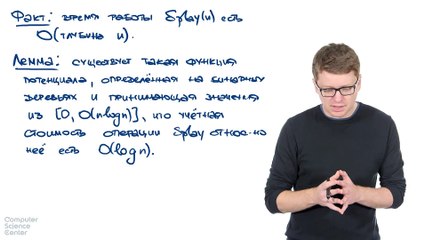 Факт: время работы Splay(u) есть
O(глубина u).
Лемма: существует такая функция
потенциала, определённая на бинарных
деревьях и принимающая значения
из [0, O(n·logn)], что учётная
стоимость операции Splay относ-но
неё есть O(logn).
Computer
Science
Center